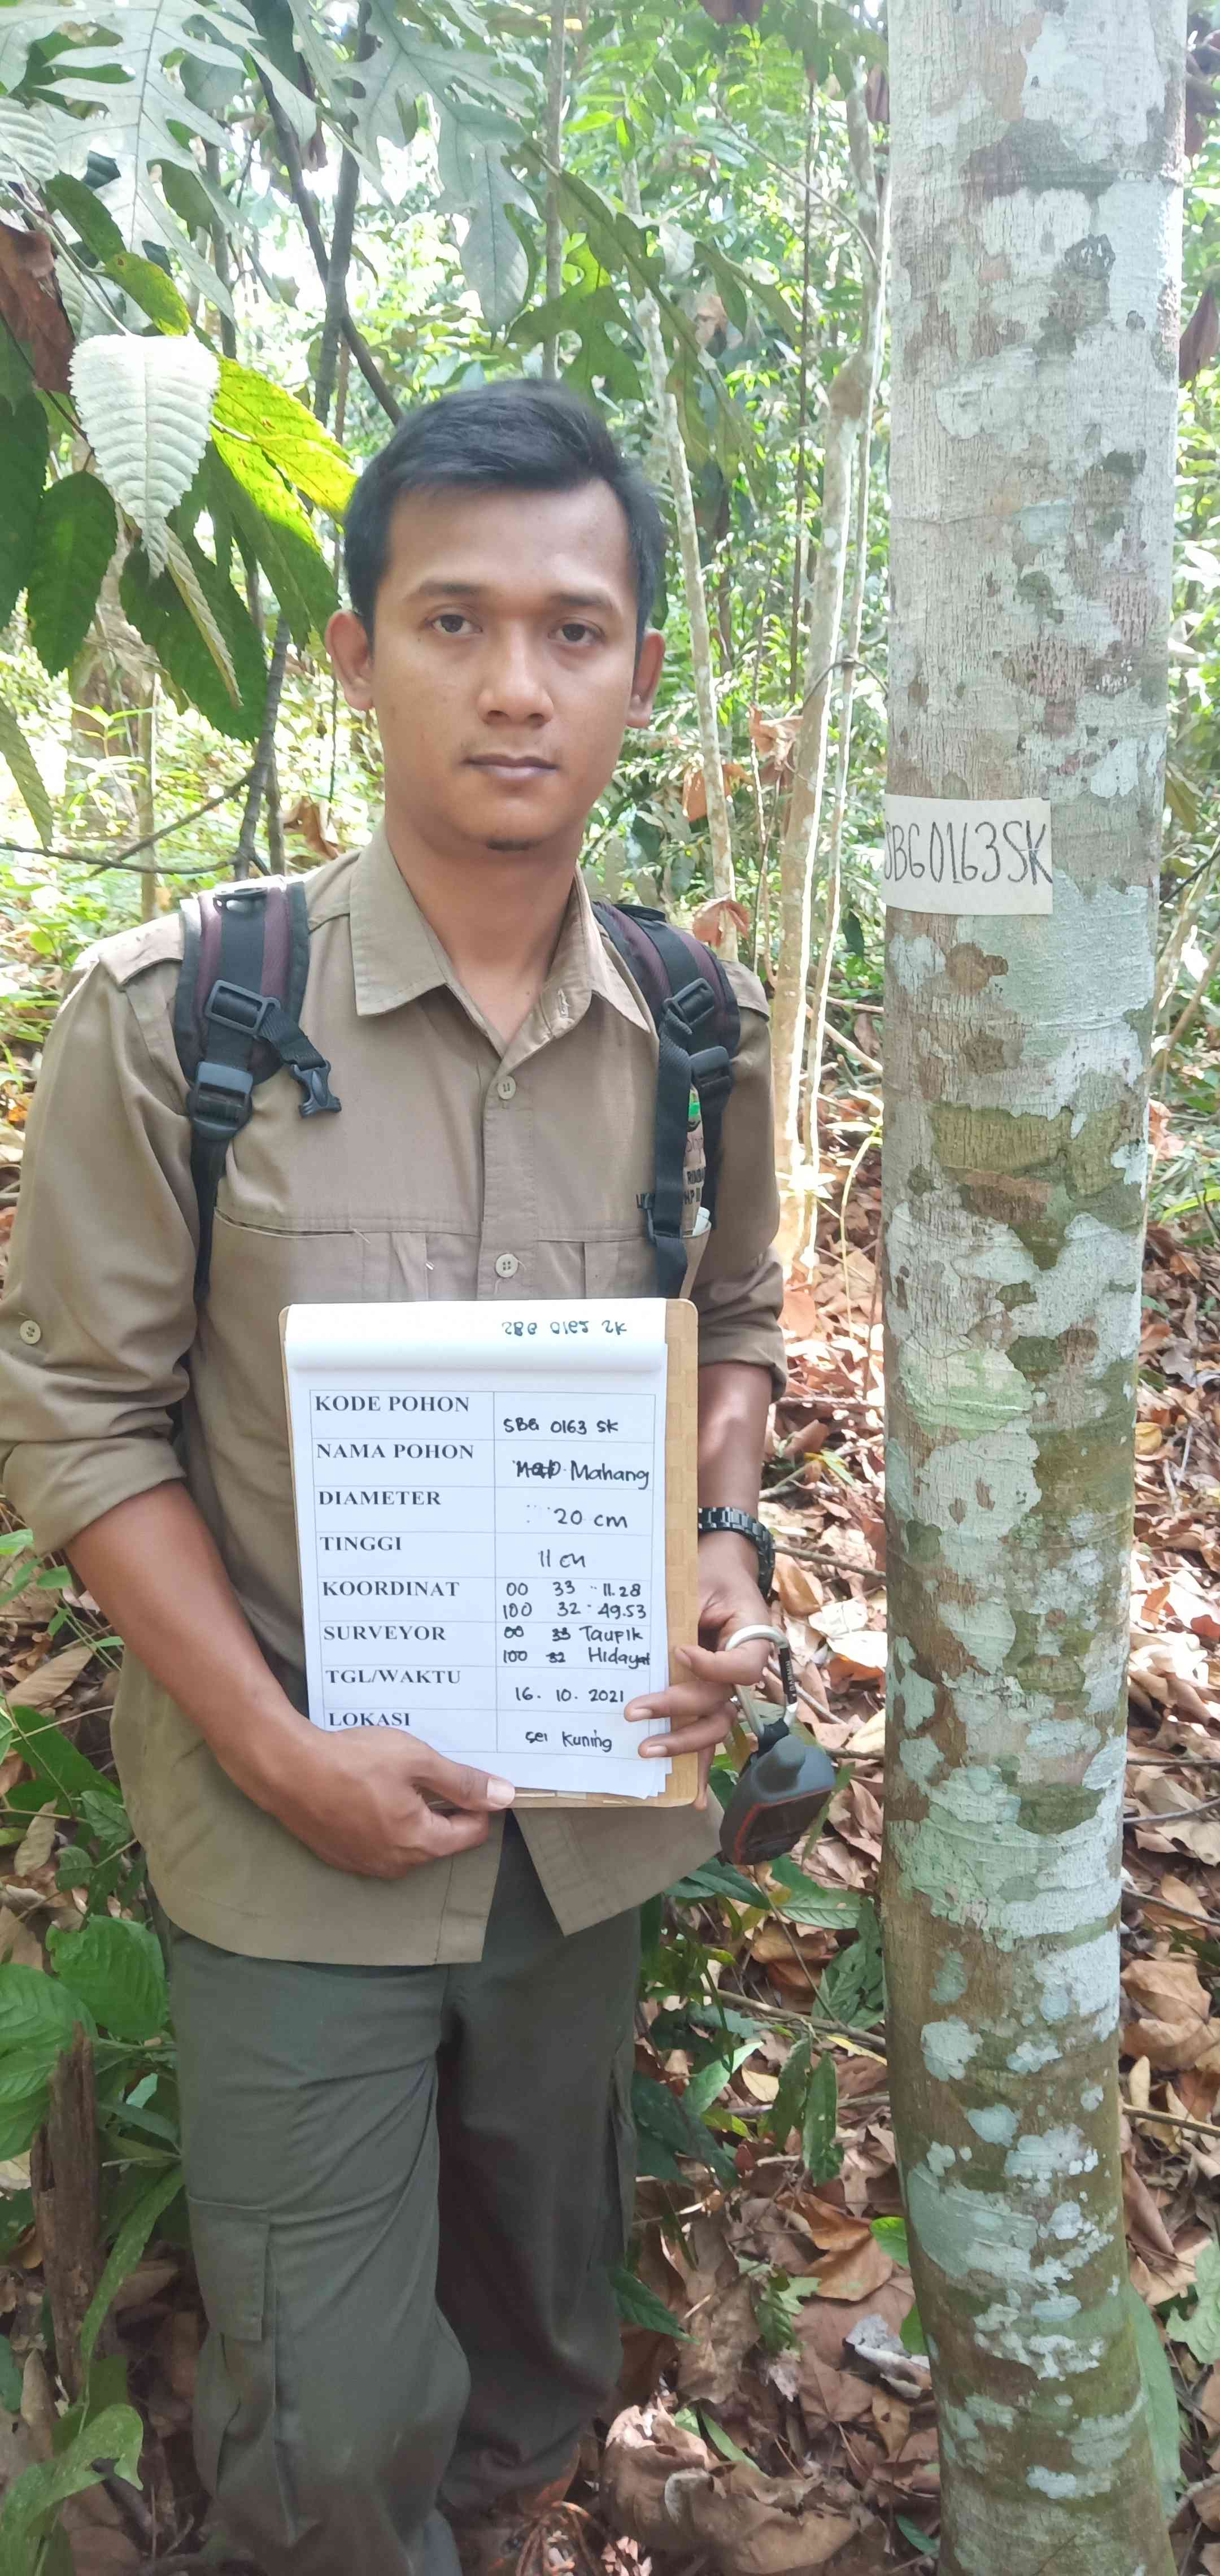 SBG0163SK
SBG 0162 SK
KODE POHON
SBG 0163 SK
NAMA POHON
Mahang
DIAMETER
20 cm
TINGGI
11 cm
KOORDINAT
00 33 11.28
100 32 49.53
SURVEYOR
00 33 Taupik
100 32 Hidayat
TGL/WAKTU
16. 10. 2021
LOKASI
Sei Kuning